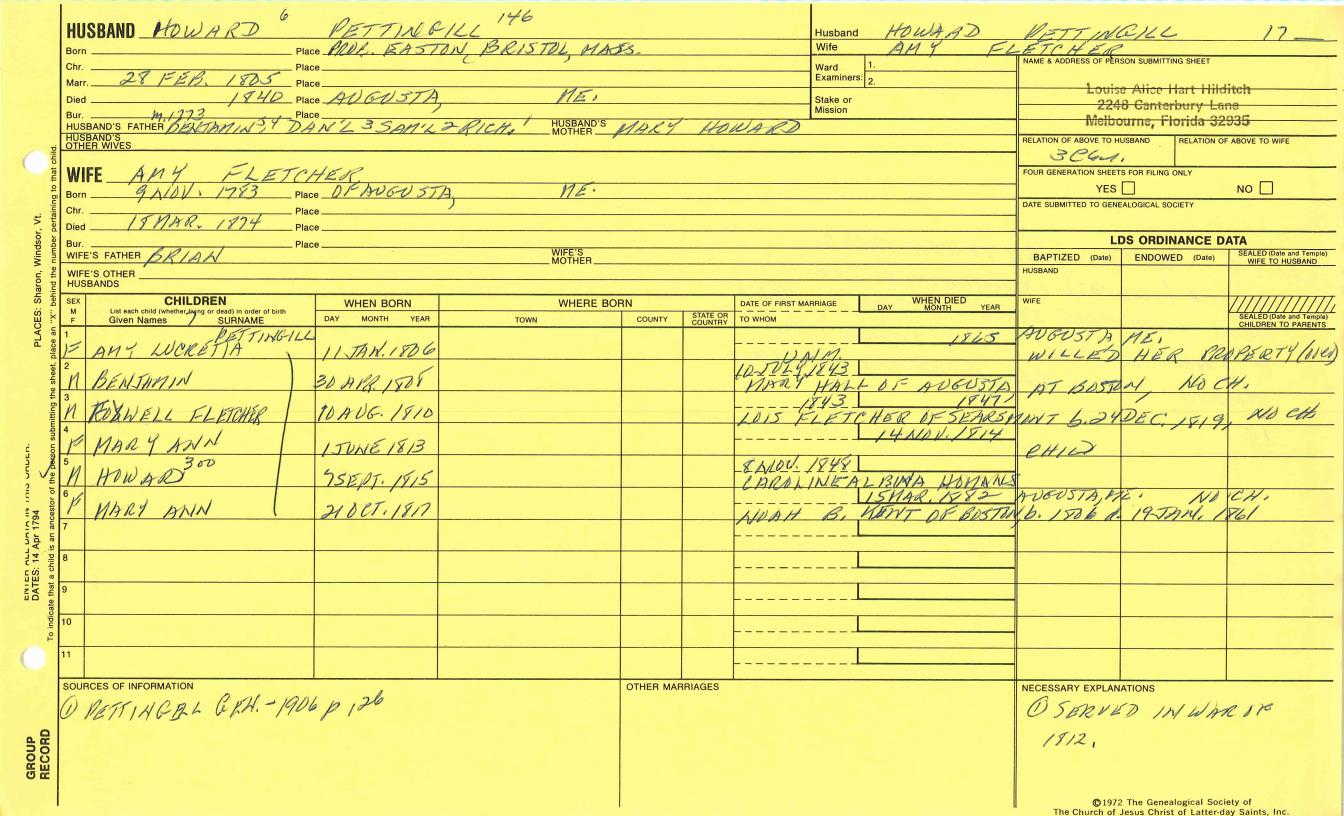 HUSBAND HOWARD 6 PETTINGILL 146
Born Place PROB. EASTON, BRISTOL, MASS.
Chr. Place
Marr. 28 FEB. 1805 Place
Died 1840 Place AUGUSTA, ME.
Bur. Place
m. 1773
HUSBAND'S FATHER BENJAMIN 5 4 DAN'L 3 SAM'L 2 RICH. 1 HUSBAND'S MOTHER MARY HOWARD
HUSBAND'S OTHER WIVES
WIFE AMY FLETCHER
Born 9 NOV. 1783 Place OF AUGUSTA, ME.
Chr. Place
Died 18 MAR. 1874 Place
Bur. Place
WIFE'S FATHER BRIAN WIFE'S MOTHER
WIFE'S OTHER HUSBANDS
Husband HOWARD PETTINGILL 17
Wife AMY FLETCHER
Ward Examiners: 1.
2.
Stake or Mission
NAME & ADDRESS OF PERSON SUBMITTING SHEET
Louise Alice Hart Hilditch
2248 Canterbury Lane
Melbourne, Florida 32935
RELATION OF ABOVE TO HUSBAND RELATION OF ABOVE TO WIFE
FOUR GENERATION SHEETS FOR FILING ONLY
YES NO
DATE SUBMITTED TO GENEALOGICAL SOCIETY
LDS ORDINANCE DATA
BAPTIZED (Date) ENDOWED (Date) SEALED (Date and Temple) WIFE TO HUSBAND
HUSBAND
WIFE
SEALED (Date and Temple) CHILDREN TO PARENTS
SEX M F
CHILDREN
List each child (whether living or dead) in order of birth
Given Names SURNAME
WHEN BORN DAY MONTH YEAR
WHERE BORN TOWN COUNTY STATE OR COUNTRY
DATE OF FIRST MARRIAGE TO WHOM
WHEN DIED DAY MONTH YEAR
1 PETTINGILL 1865 AUGUSTA ME.
F AMY LUCRETIA 11 JAN. 1806 UNM. WILLED HER PROPERTY
2 10 JULY 1843
M BENJAMIN 30 APR. 1808 MARY HALL OF AUGUSTA AT BOSTON, NO CH.
3 1843 1847
M ROSWELL FLETCHER 10 AUG. 1810 LOIS FLETCHER OF SEARSMONT b. 24 DEC. 1819, NO CH
4 14 NOV. 1814
F MARY ANN 1 JUNE 1813 CHILD
5 8 NOV. 1848
M HOWARD 300 7 SEPT. 1815 CAROLINE ALBINA HOMANS
6 15 MAR. 1882 AUGUSTA, ME. NO CH.
F MARY ANN 21 OCT. 1817 NOAH B. KENT OF BOSTON b. 1806 d. 19 JAN. 1861
7
8
9
10
11
SOURCES OF INFORMATION
① PETTINGELL GEN. - 1906 p 126
OTHER MARRIAGES
NECESSARY EXPLANATIONS
① SERVED IN WAR OF
1812.
©1972 The Genealogical Society of
The Church of Jesus Christ of Latter-day Saints, Inc.
PLACES: Sharon, Windsor, Vt.
DATES: 14 Apr 1794
To indicate that a child is an ancestor of the person submitting the sheet, place an "X" behind the number pertaining to that child.
GROUP RECORD